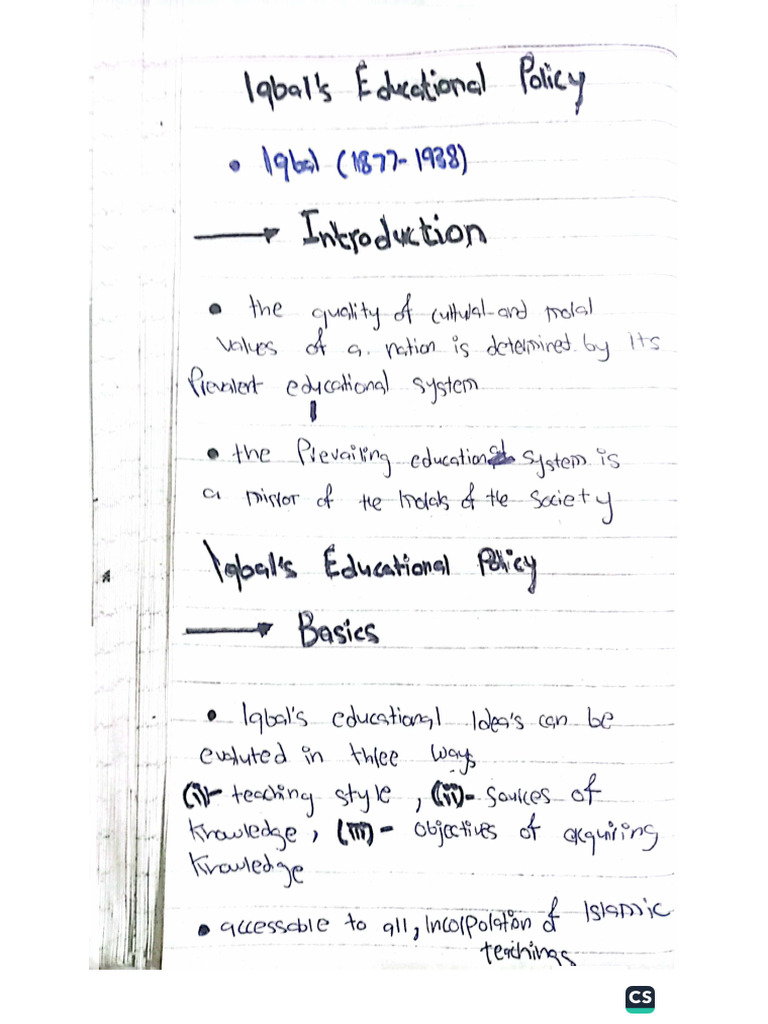 Iqbal's Educational Policy
• Iqbal (1877-1938)
→ Introduction
• the quality of cultural and moral
values of a nation is determined by its
Prevalent educational system
• the Prevailing educational system is
a mirror of the morals of the society
Iqbal's Educational Policy
→ Basics
• Iqbal's educational Idea's can be
evaluted in three ways
(i)- teaching style, (ii)- sources of
knowledge, (iii)- objectives of acquiring
knowledge
• accessable to all, Incorporation of Islamic
teachings
CS